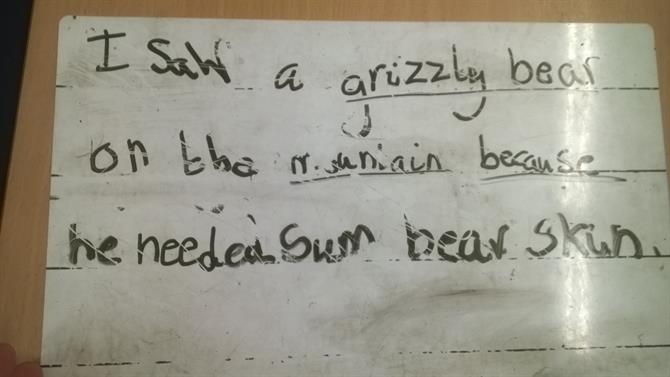 I saw a grizzly bear
on the mountain because
he needed sum bear skin.